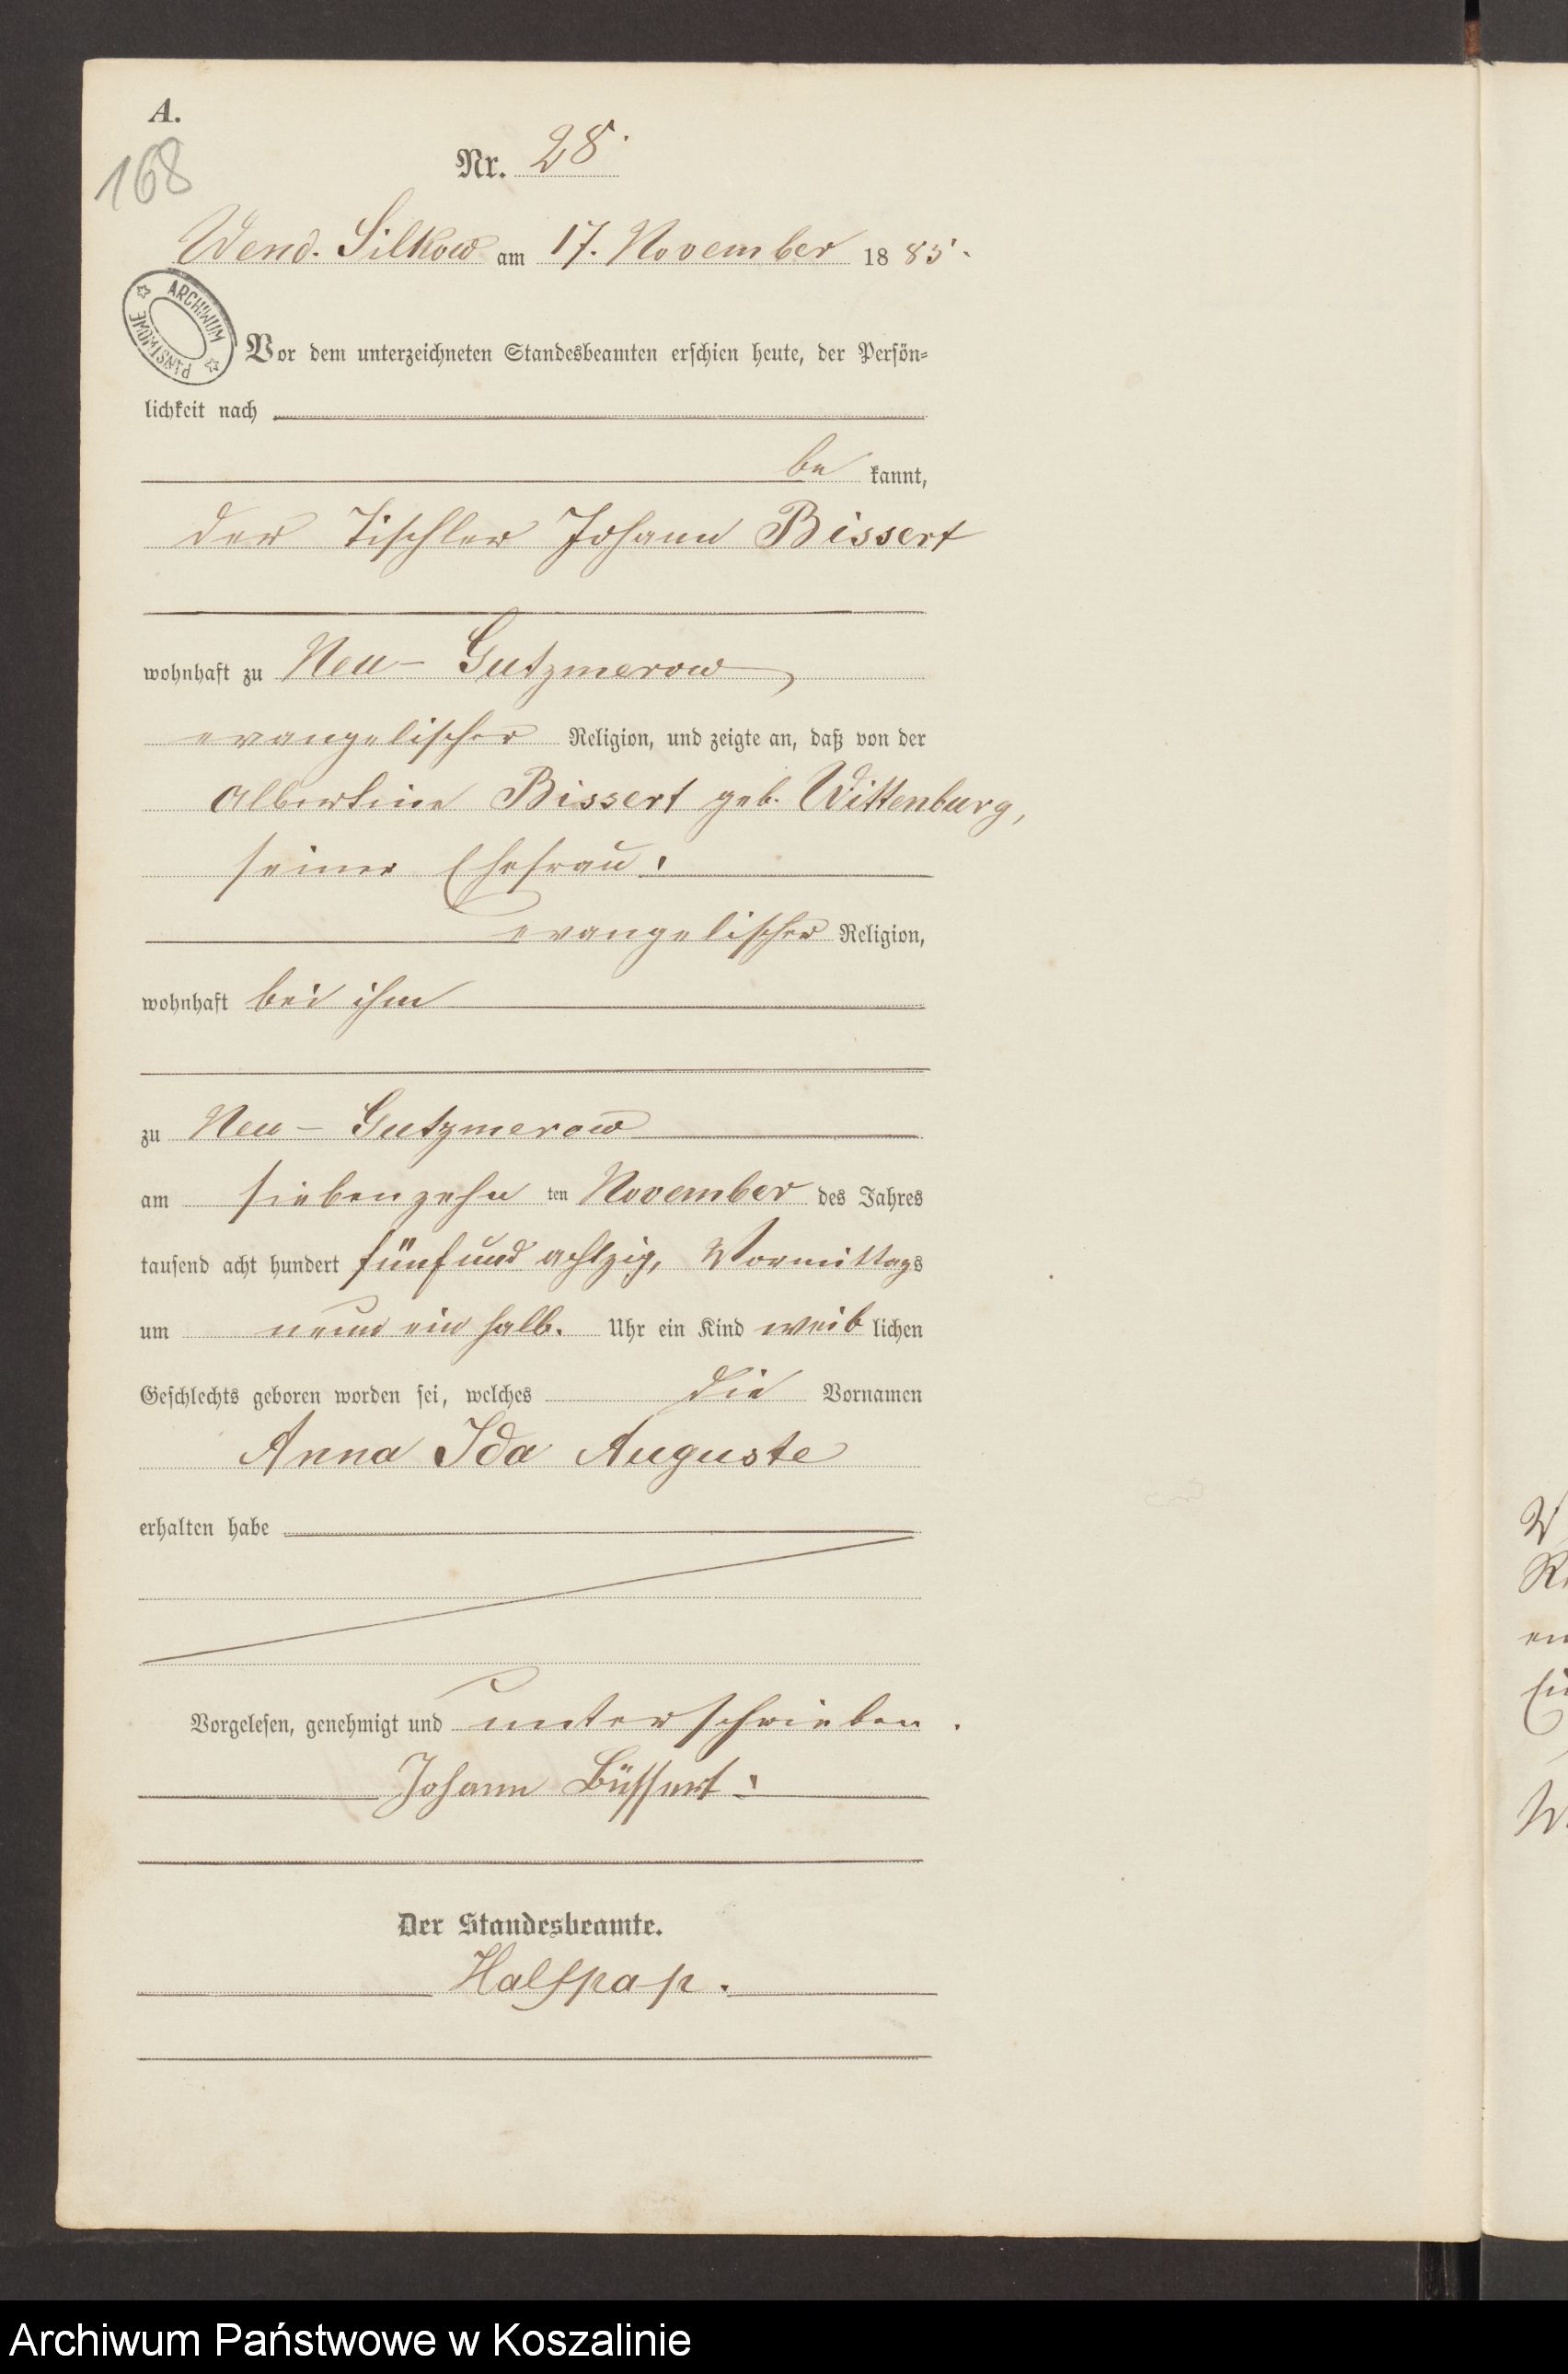 A.
168
Nr. 28.
Wend. Silkow am 17. November 1885.
ARCHIWUM PAŃSTWOWE
Vor dem unterzeichneten Standesbeamten erschien heute, der Persön-
lichkeit nach
be kannt,
der Tischler Johann Bissert
wohnhaft zu Neu-Gutzmerow,
evangelischer Religion, und zeigte an, daß von der
Albertine Bissert geb. Wittenburg,
seiner Ehefrau,
evangelischer Religion,
wohnhaft bei ihm
zu Neu-Gutzmerow
am siebenzehn ten November des Jahres
tausend acht hundert fünf und achtzig, Vormittags
um neun ein halb. Uhr ein Kind weib lichen
Geschlechts geboren worden sei, welches die Vornamen
Anna Ida Auguste
erhalten habe
Vorgelesen, genehmigt und unterschrieben.
Johann Büssert.
Der Standesbeamte.
Halfpap.
Archiwum Państwowe w Koszalinie